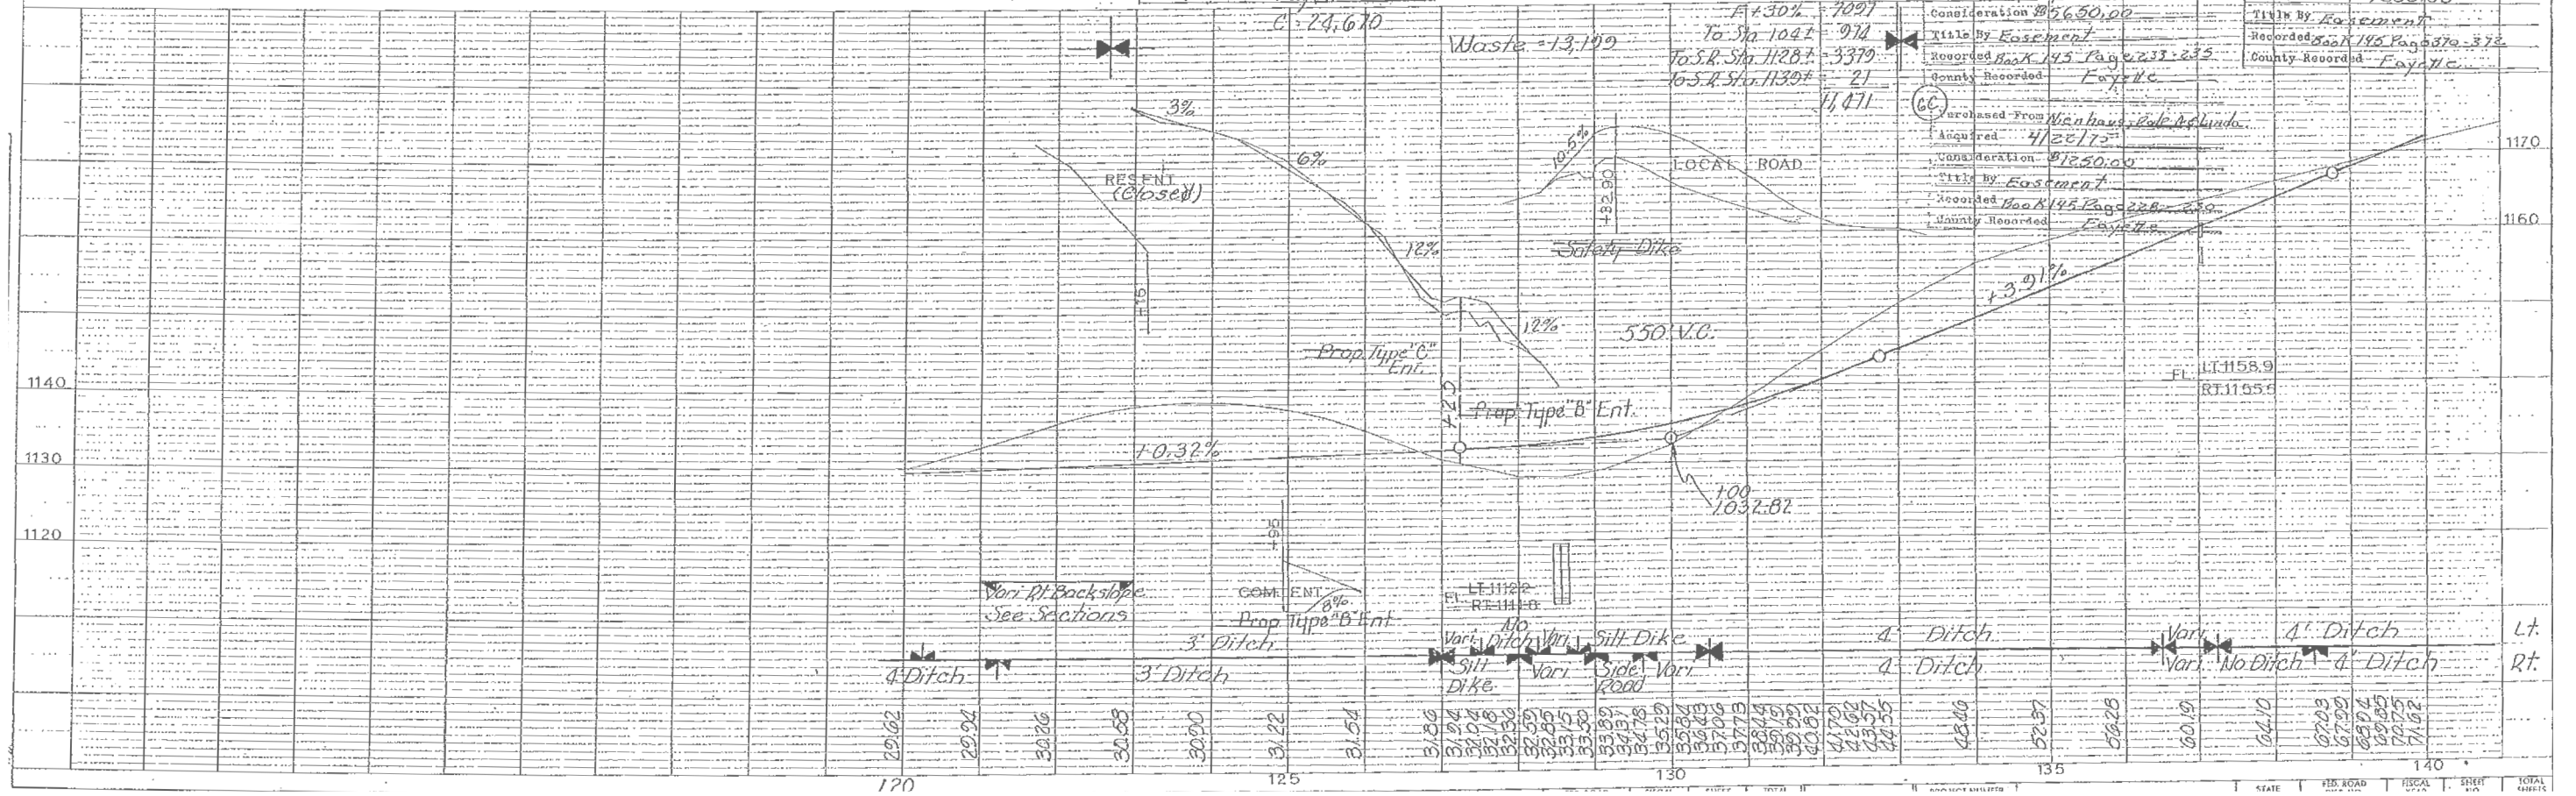 C = 24,670
Waste = 13,199
F+30% = 7097
To Sta 104± = 974
To S.R. Sta. 1128± = 3379
To S.R. Sta. 1139± = 21
11,471
Consideration $5650.00
Title By Easement
Recorded Book 145 Page 233-235
County Recorded Fayette
Title By Easement
Recorded Book 145 Page 370-372
County Recorded Fayette
6C
Purchased From Nienhaus, Dale & Linda
Acquired 4/22/75
Consideration $1250.00
Title By Easement
Recorded Book 145 Page 228-230
County Recorded Fayette
3%
6%
12%
RES ENT.
(Closed)
+15
10.5%
LOCAL ROAD
+32.90
Safety Dike
12%
550' V.C.
Prop. Type "C"
Ent.
+20
Prop. Type "B" Ent.
+3.91%
1170
1160
1140
1130
1120
+0.32%
+00
1032.82
FL. LT. 1158.9
RT. 1155.5
+95
COM. ENT.
8%
Prop. Type "B" Ent.
FL. LT. 1112.2
RT. 1111.8
Vari. Rt. Backslope
See Sections
3' Ditch
Vari.
No
Ditch
Vari.
Silt Dike
4' Ditch
Vari.
4' Ditch
Lt.
4' Ditch
3' Ditch
Silt
Dike
Vari.
Side
Road
Vari.
4' Ditch
Vari.
No Ditch
4' Ditch
Rt.
29.62
29.94
30.26
30.58
30.90
31.22
31.54
31.86
31.94
32.04
32.18
32.36
32.59
32.85
33.15
33.50
33.89
34.31
34.78
35.29
35.84
36.43
37.06
37.73
38.44
39.19
39.99
40.82
41.70
42.62
43.57
44.55
48.46
52.37
56.28
60.19
64.10
67.03
67.99
68.94
69.85
70.75
71.62
120
125
130
135
140
PROJECT NUMBER
STATE
FED. ROAD
FISCAL
SHEET
NO.
TOTAL
SHEETS